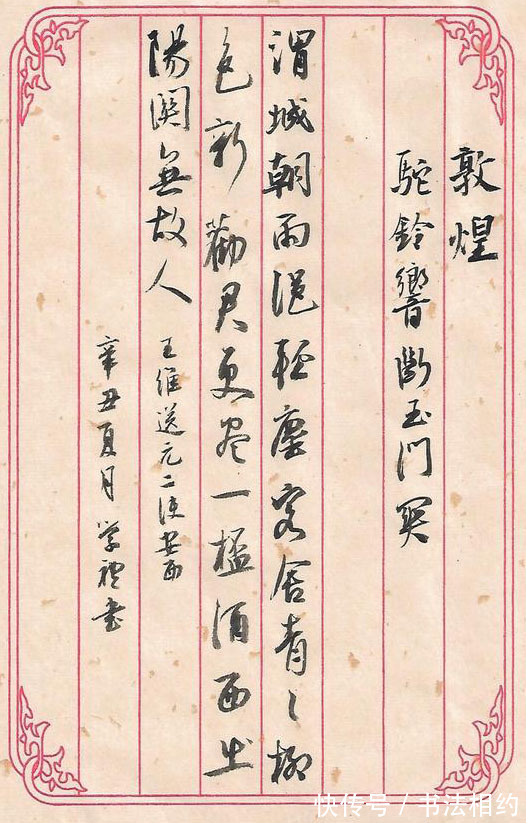 敦煌
駝鈴響斷玉門關
渭城朝雨浥輕塵客舍青〻柳
色新勸君更盡一杯酒西出
陽關無故人
王維送元二使安西
辛丑夏月學禮書
快传号/书法相约